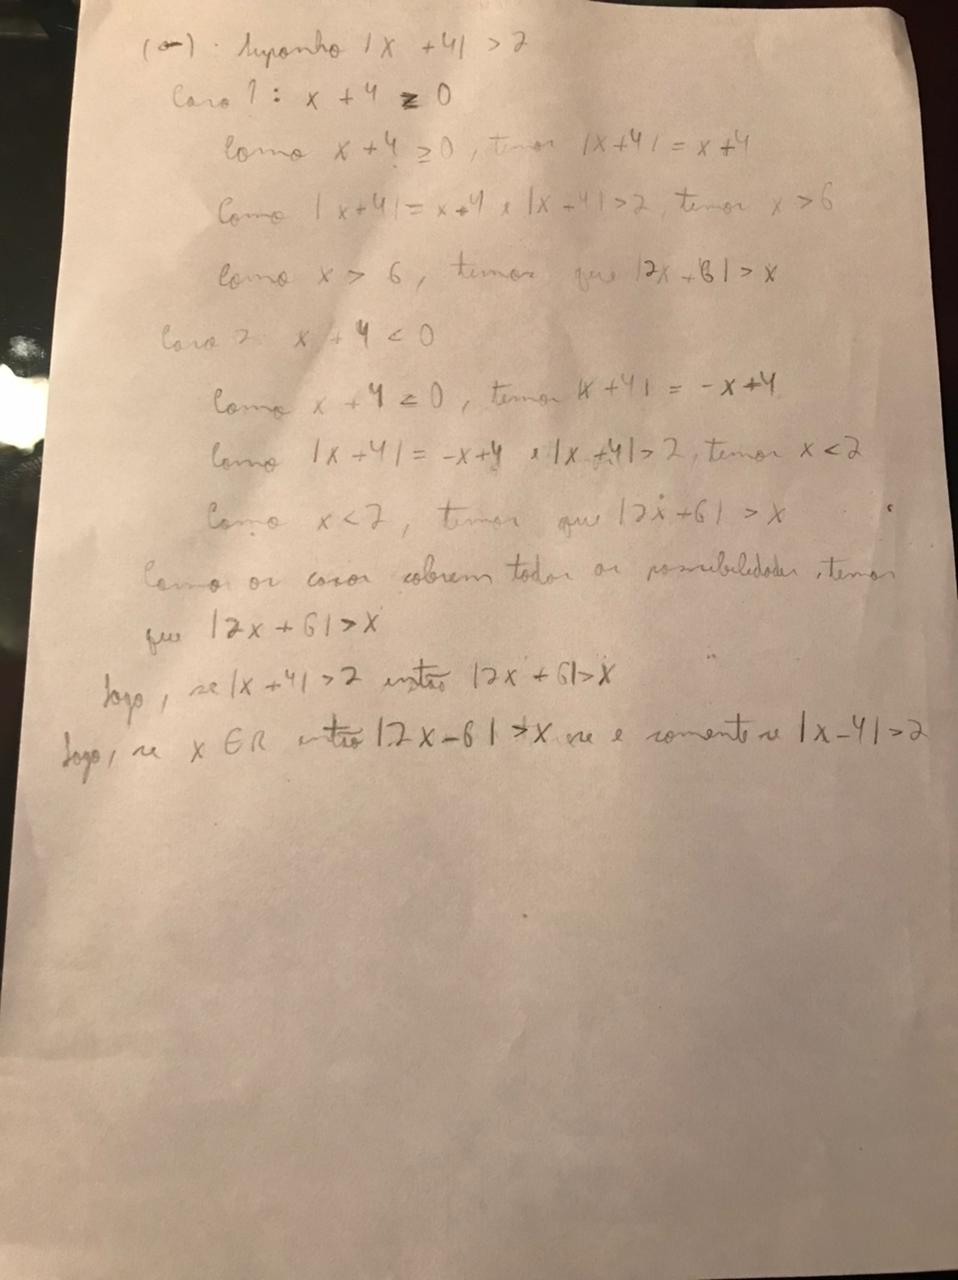 (←): Suponho |x + 4| > 2
Caso 1: x + 4 ≥ 0
Como x + 4 ≥ 0, temos |x+4| = x+4
Como |x+4| = x+4 e |x-4| > 2, temos x > 6
Como x > 6, temos que |2x - 6| > x
Caso 2: x + 4 < 0
Como x + 4 ≤ 0, temos |x+4| = -x+4
Como |x+4| = -x+4 e |x+4| > 2, temos x < 2
Como x < 2, temos que |2x+6| > x
Como os casos cobrem todas as possibilidades, temos
que |2x + 6| > x
Logo, se |x+4| > 2 então |2x + 6| > x
Logo, se x ∈ R então |2x-6| > x se e somente se |x-4| > 2